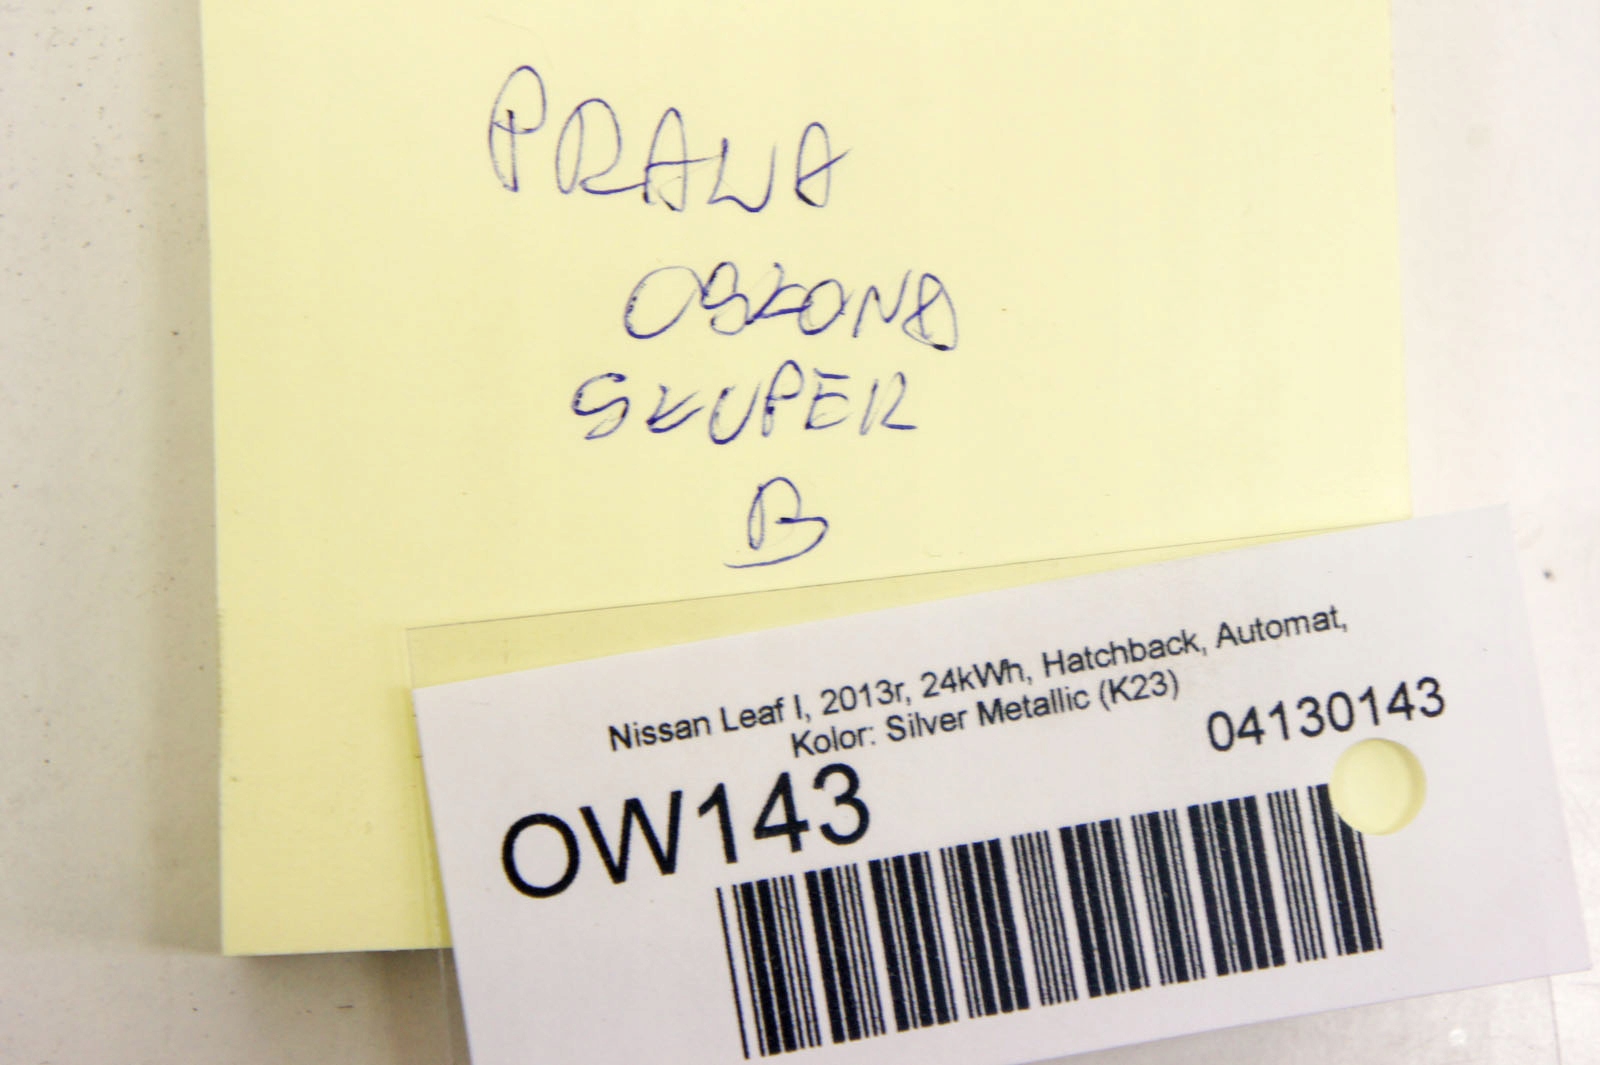 PRAWA
OSŁONA
SŁUPEK
B
Nissan Leaf I, 2013r, 24kWh, Hatchback, Automat,
Kolor: Silver Metallic (K23)
04130143
OW143